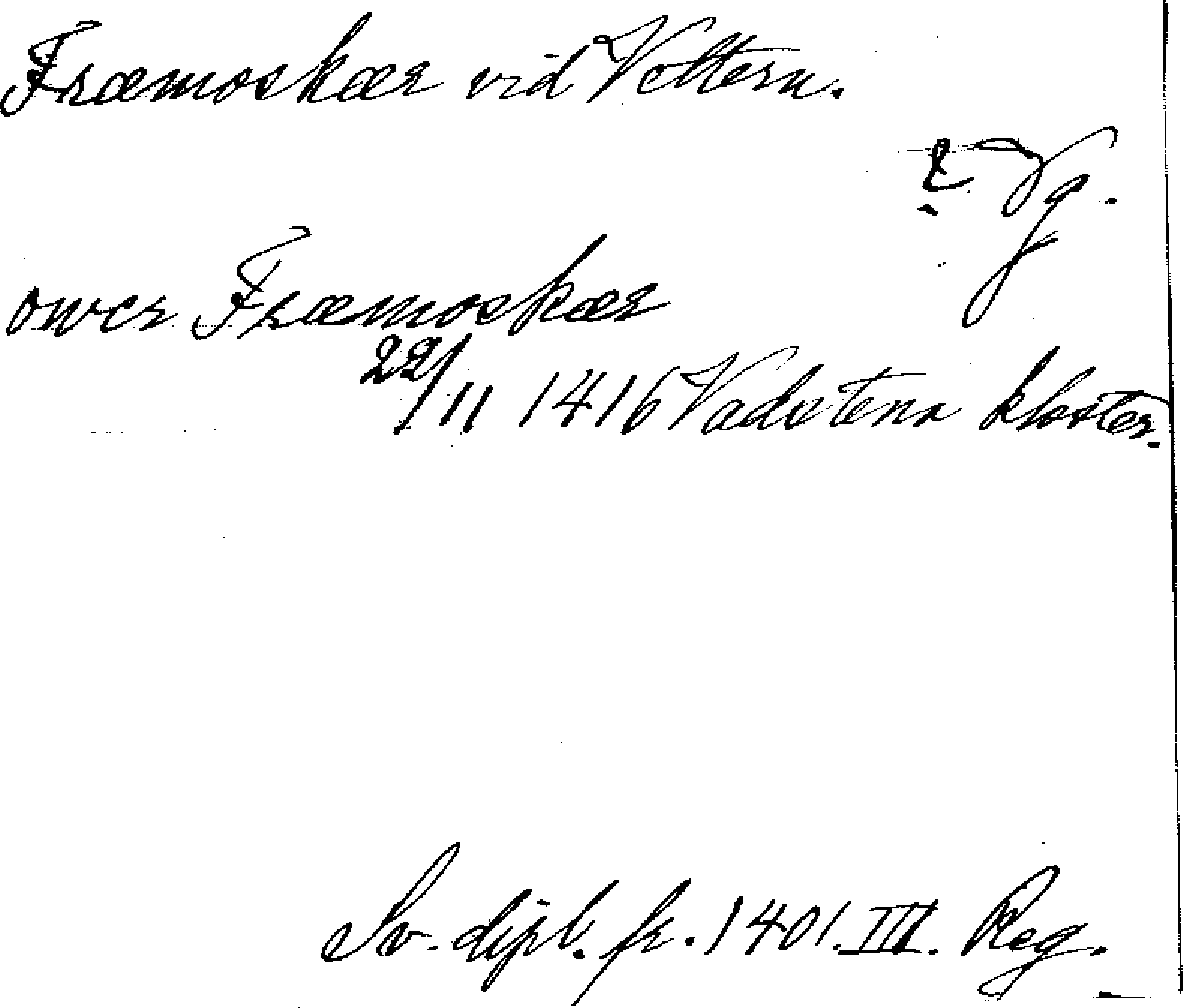 Fræmoskær vid Vettern.
Vg.
ower Fræmoskær
22/11 1416 Vadstena kloster.
Sv. dipl. fr. 1401. III. Reg.